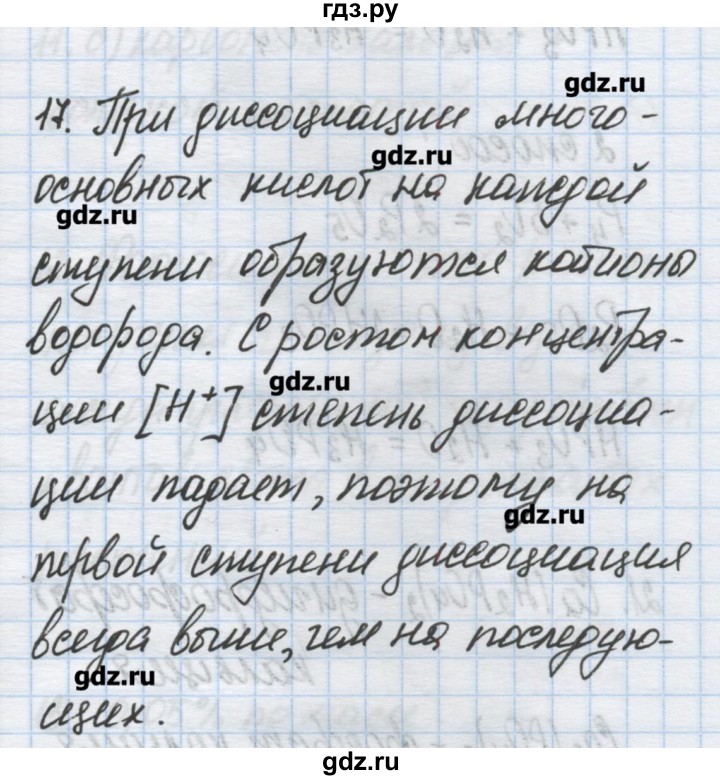 гдз.ру
gdz.ru
17. При диссоциации много-
gdz.ru
основных кислот на каждой
gdz.ru
ступени образуются катионы
водорода. С ростом концентра-
gdz.ru
ции [H⁺] степень диссоциа-
ции падает, поэтому на
gdz.ru
первой ступени диссоциация
всегда выше, чем на последую-
gdz.ru
щих.
gdz.ru